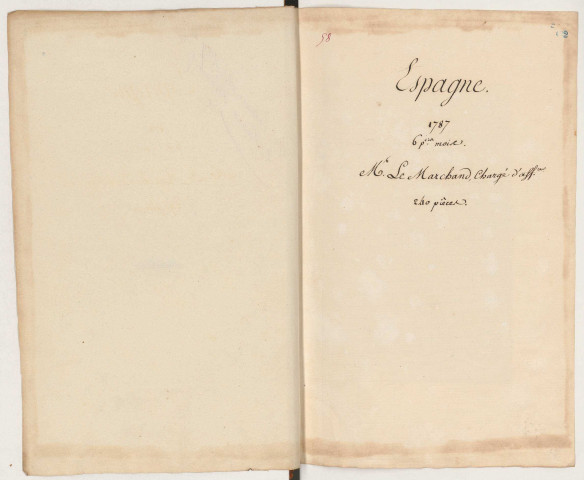 58
2
Espagne.
1787
6 p.rs mois.
M.r Le Marchand, Chargé d'aff.res
240 pièces.